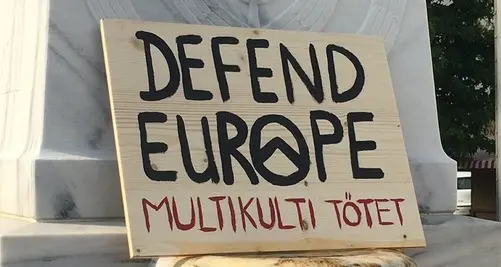 DEFEND
EUROPE
MULTIKULTI TÖTET